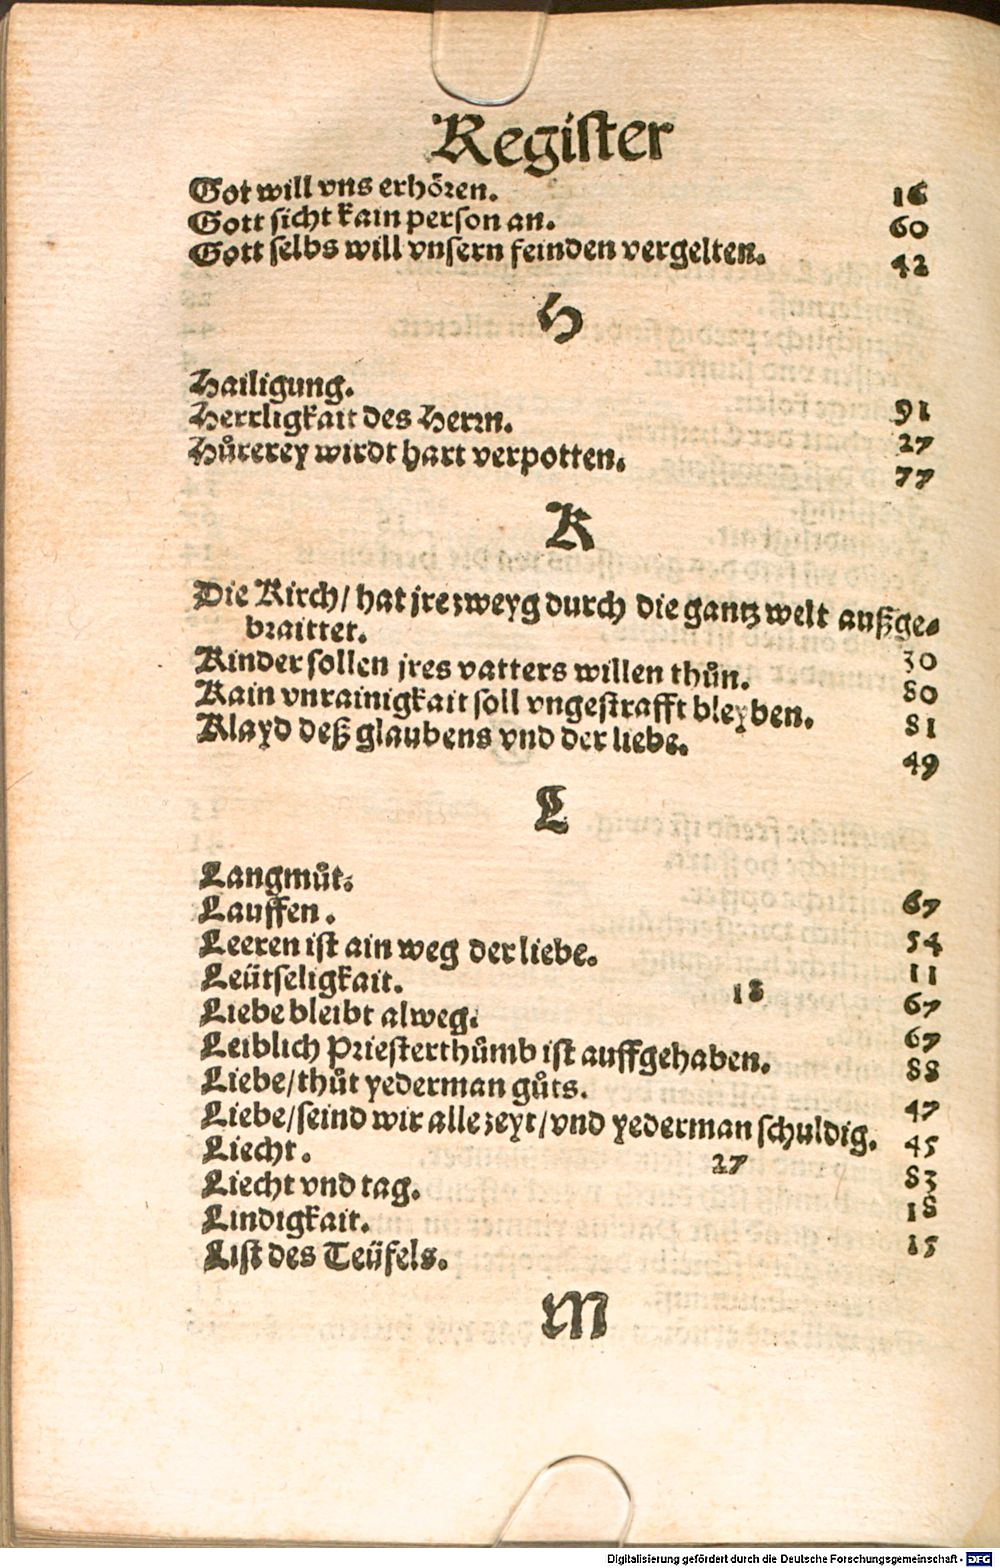 Register
Got will vns erhören. 16
Gott sicht kain person an. 60
Gott selbs will vnsern feinden vergelten. 42
H
Hailigung. 91
Herrligkait des Herrn. 27
Hůrerey wirdt hart verpotten. 77
K
Die Kirch/ hat jre zweyg durch die gantz welt außge-
braittet. 30
Kinder sollen jres vatters willen thůn. 80
Kain vnrainigkait soll vngestrafft bleyben. 81
Klayd deß glaubens vnd der liebe. 49
L
Langmůt. 67
Lauffen. 54
Leeren ist ain weg der liebe. 11
Leütseligkait. 18 67
Liebe bleibt alweg. 67
Leiblich Priesterthůmb ist auffgehaben. 88
Liebe/thůt yederman gůts. 47
Liebe/seind wir alle zeyt/vnd yederman schuldig. 45
Liecht. 27 83
Liecht vnd tag. 18
Lindigkait. 15
List des Teüfels.
M
Digitalisierung gefördert durch die Deutsche Forschungsgemeinschaft - DFG